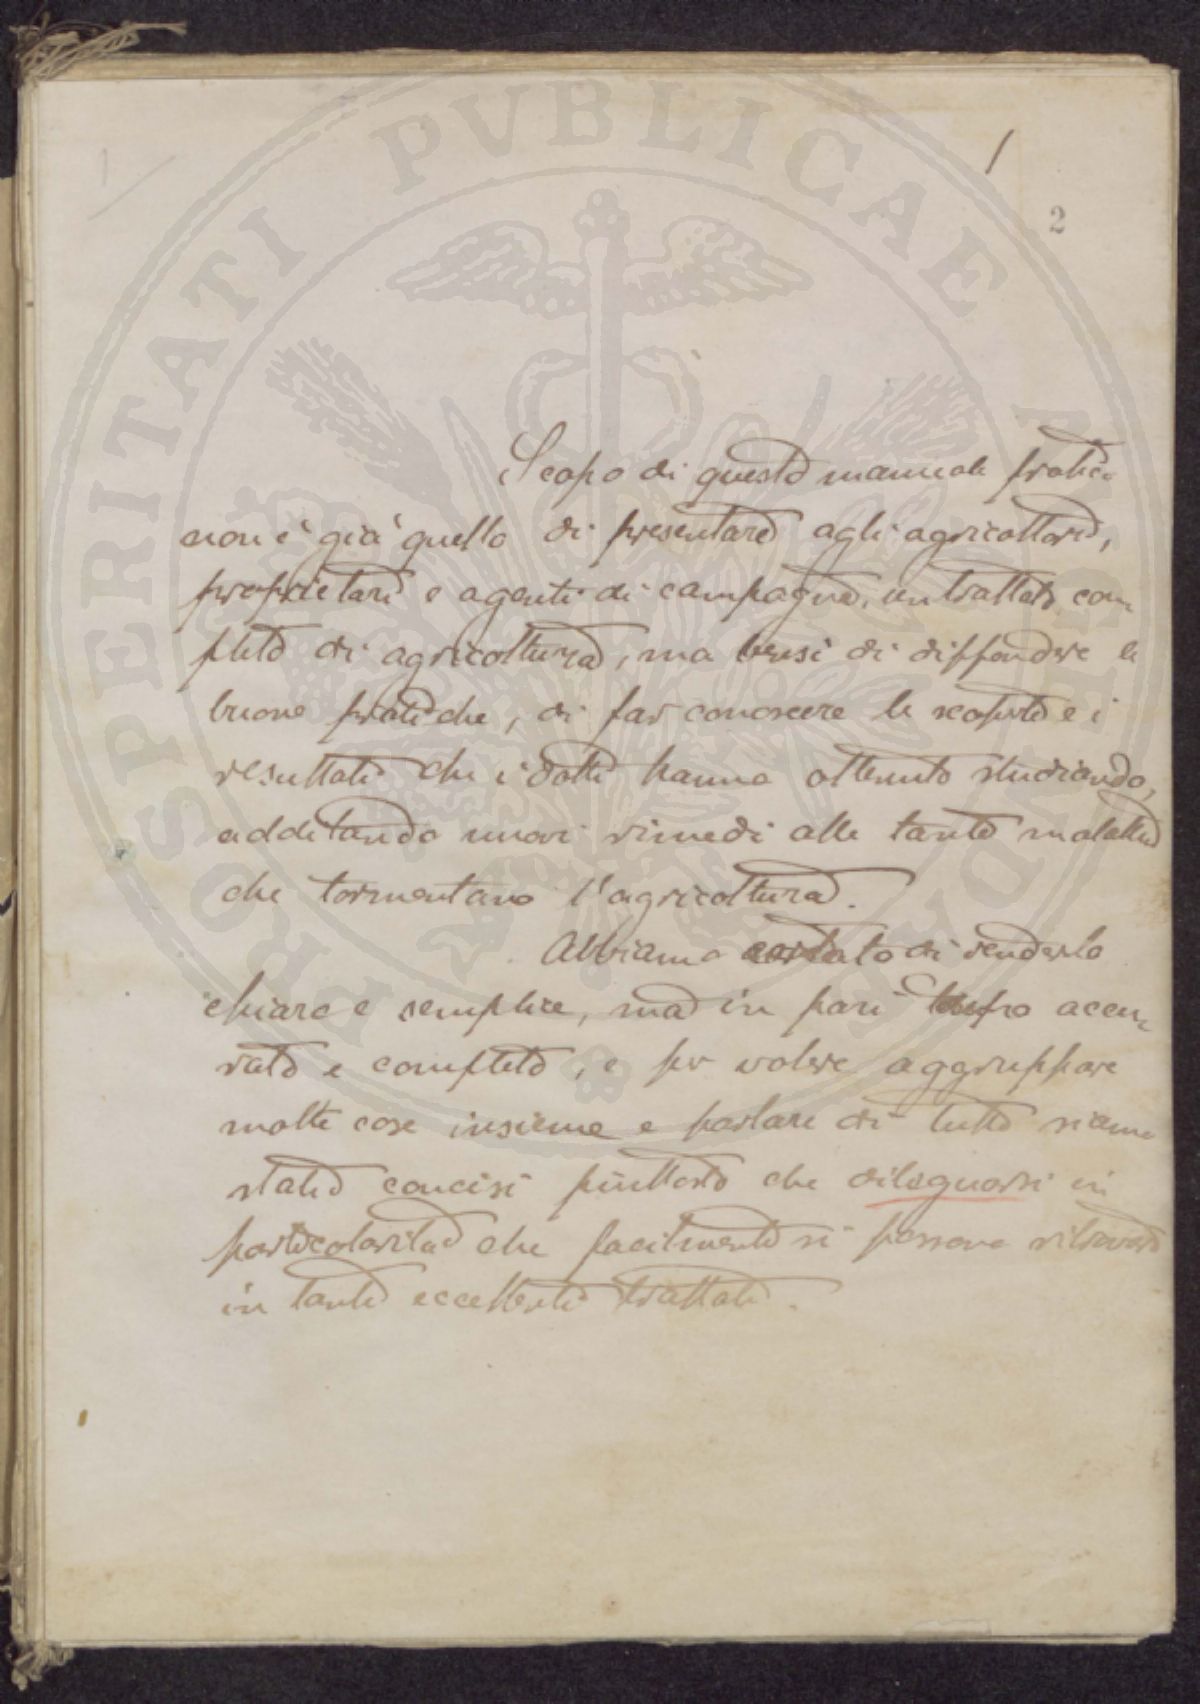 1
2
Scopo di questo manuale pratico
non è già quello di presentare agli agricoltori,
proprietari e agenti di campagna, un trattato com
pleto di agricoltura, ma bensì di diffondere le
buone pratiche, di far conoscere le scoperte e i
resultati che i dotti hanno ottenuto studiando,
additando nuovi rimedi alle tante malattie
che tormentano l'agricoltura.
Abbiamo cercato di renderlo
chiaro e semplice, ma in pari tempo accu
rato e completo, e per volere aggruppare
molte cose insieme e parlare di tutto siamo
stati concisi piuttosto che dileguarsi in
particolarità che facilmente si possono ritrovare
in tanti eccellenti trattati.
PROSPERITATI PVBLICAE AVGENDAE